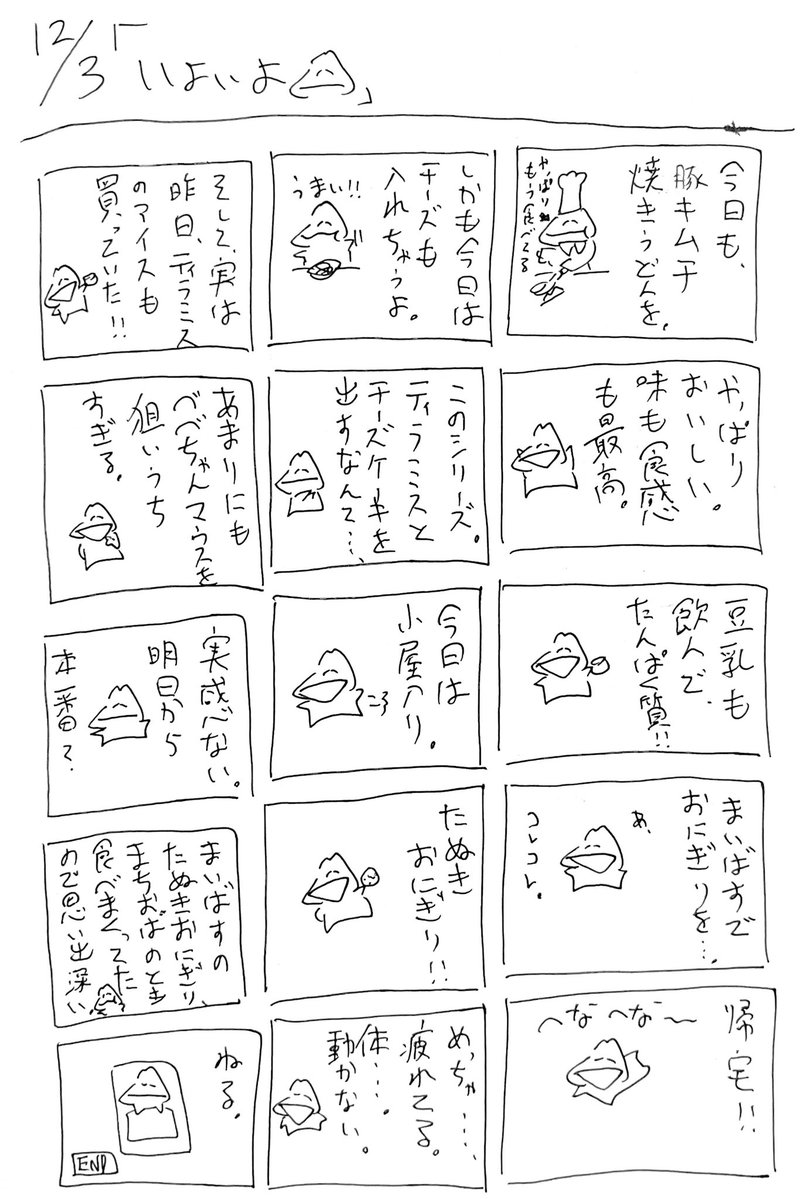 12/3「いよいよ」
今日も、
豚キムチ
焼きうどんを。
やっぱり
もう食べてる
しかも今日は
チーズも
入れちゃうよ。
うまい!!
そして、実は
昨日、ティラミス
のアイスも
買っていた!!
やっぱり
おいしい。
味も食感
も最高。
このシリーズ。
ティラミスと
チーズケーキを
出すなんて…、
あまりにも
べべちゃんマウスを
狙いうち
すぎる。
豆乳も
飲んで、
たんぱく質!!
今日は
小屋入り。
ころ
実感ない。
明日から
本番て?
まいばすで
おにぎりを…。
あ、
コレコレ。
たぬき
おにぎり!!
まいばすの
たぬきおにぎり、
まちおばのとき
食べまくってた
ので思い出深い
帰宅!!
へなへな〜
めっちゃ…、
疲れてる。
体…。
動かない。
ねる。
END